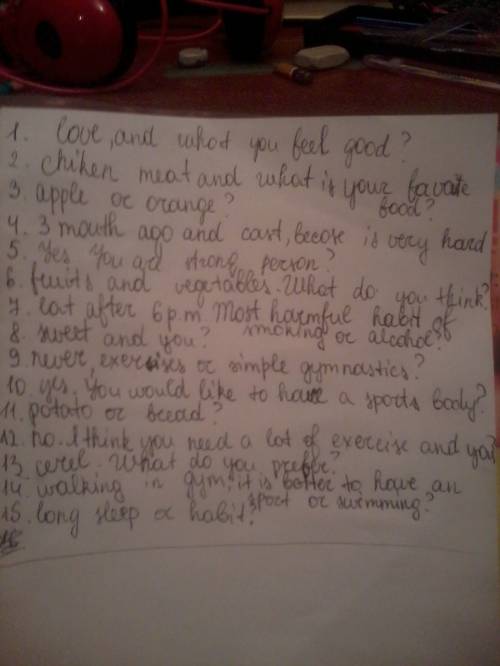 1. love, and what you feel good?
2. chiken meat and what is your favarite
food?
3. apple or orange?
4. 3 mouth ago and cast, becose is very hard
5. Yes You are strong person?
6. fruits and vegetables. What do you think?
7. eat after 6 p.m. Most harmful habit of
smoking or alcohol?
8. sweet and you?
9. never, exercises or simple gymnastics?
10. yes, You would like to have a sports body?
11. potato or bread?
12. no. I think you need a lot of exercise and you?
13. cerel. What do you preffer?
14. walking in gym; it is better to have an
sport or swimming?
15. long sleep or habit?
16